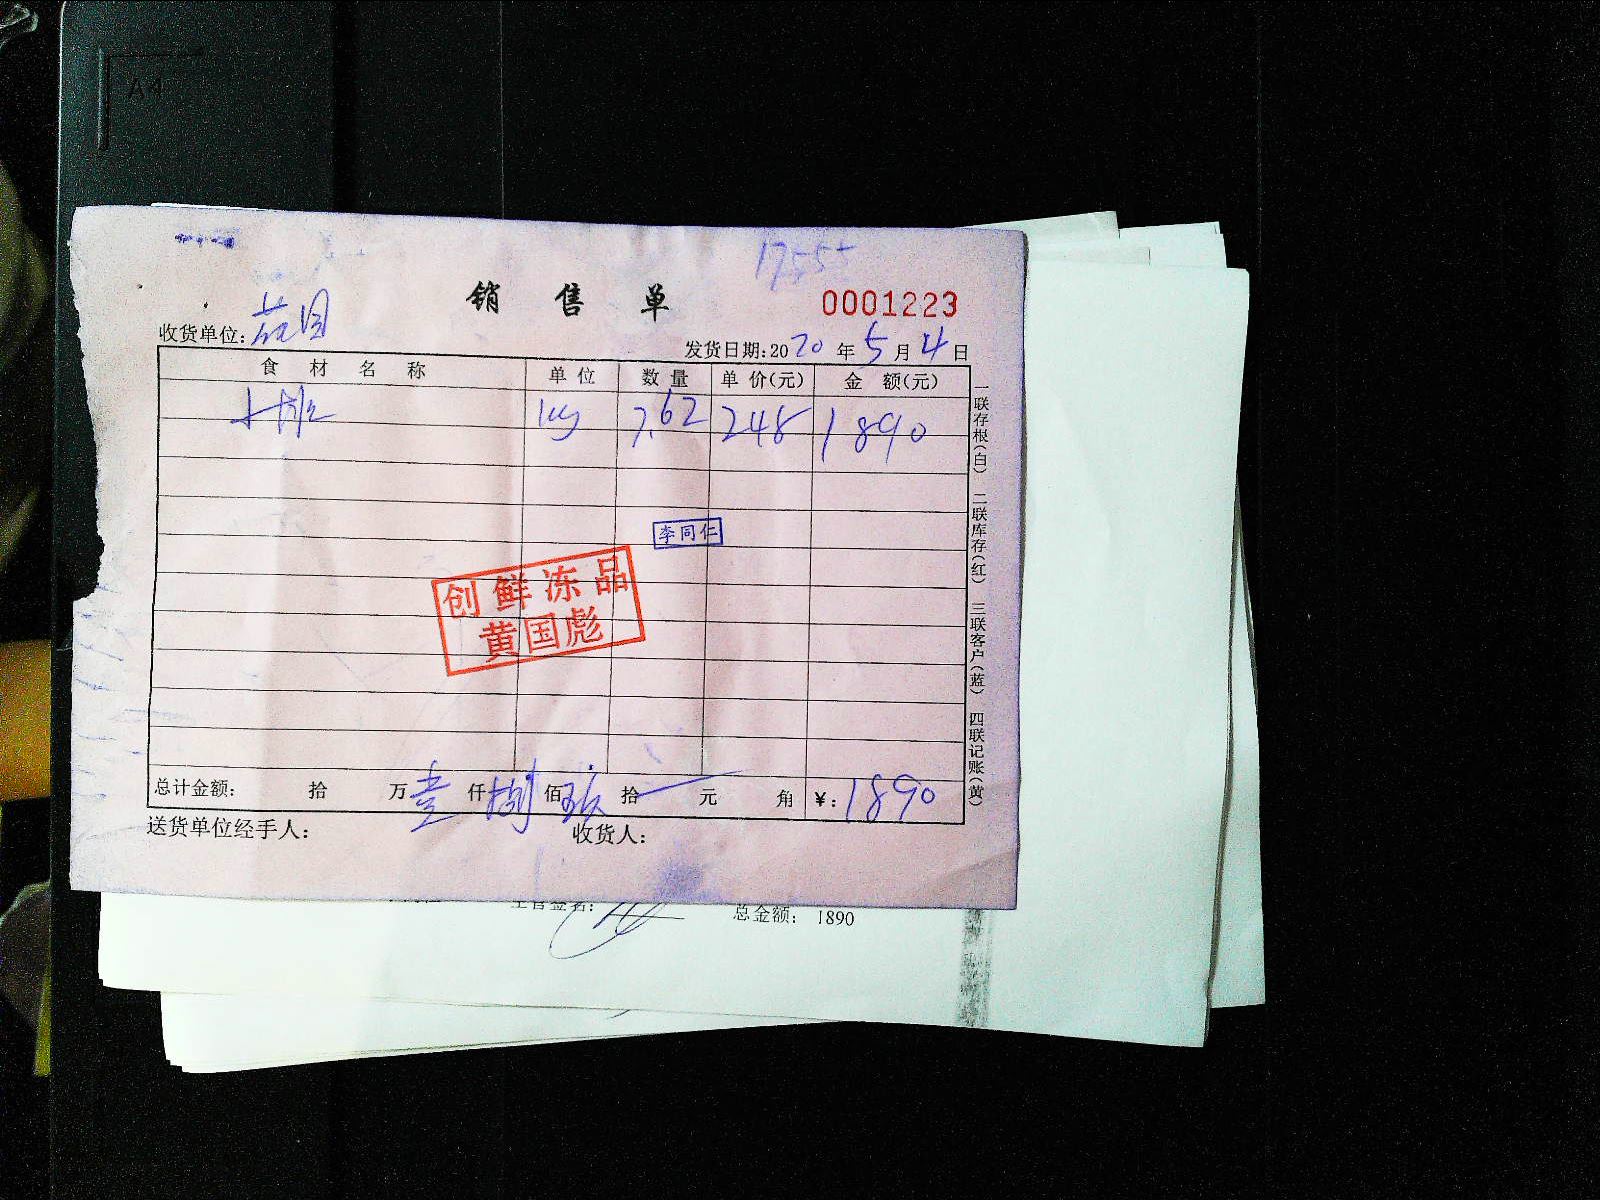 A4
1755
销 售 单
0001223
收货单位: 花园
发货日期:2020 年 5 月 4 日
食 材 名 称 单 位 数 量 单 价(元) 金 额(元)
kg 7.62 248 1890
李同仁
创鲜冻品
黄国彪
总计金额: 拾 万 壹 仟 捌 佰 玖 拾 元 角 ¥: 1890
送货单位经手人: 收货人:
一联存根(白) 二联库存(红) 三联客户(蓝) 四联记账(黄)
主管签名: 总金额: 1890